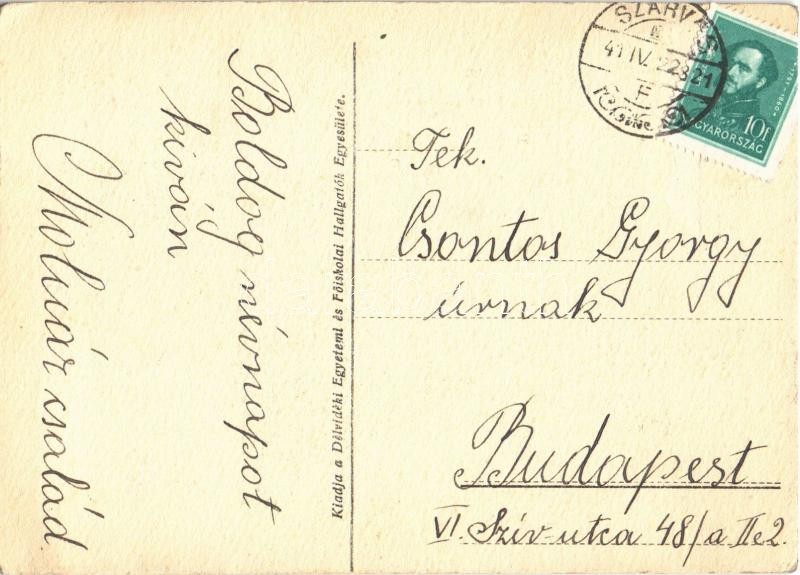 Boldog névnapot
kíván
Molnár család
Kiadja a Délvidéki Egyetemi és Főiskolai Hallgatók Egyesülete.
SZARVAS
41 IV. 22 21
10f
MAGYARORSZÁG
Tek.
Csontos György
úrnak
Budapest
VI Szív-utca 48/a II e 2.